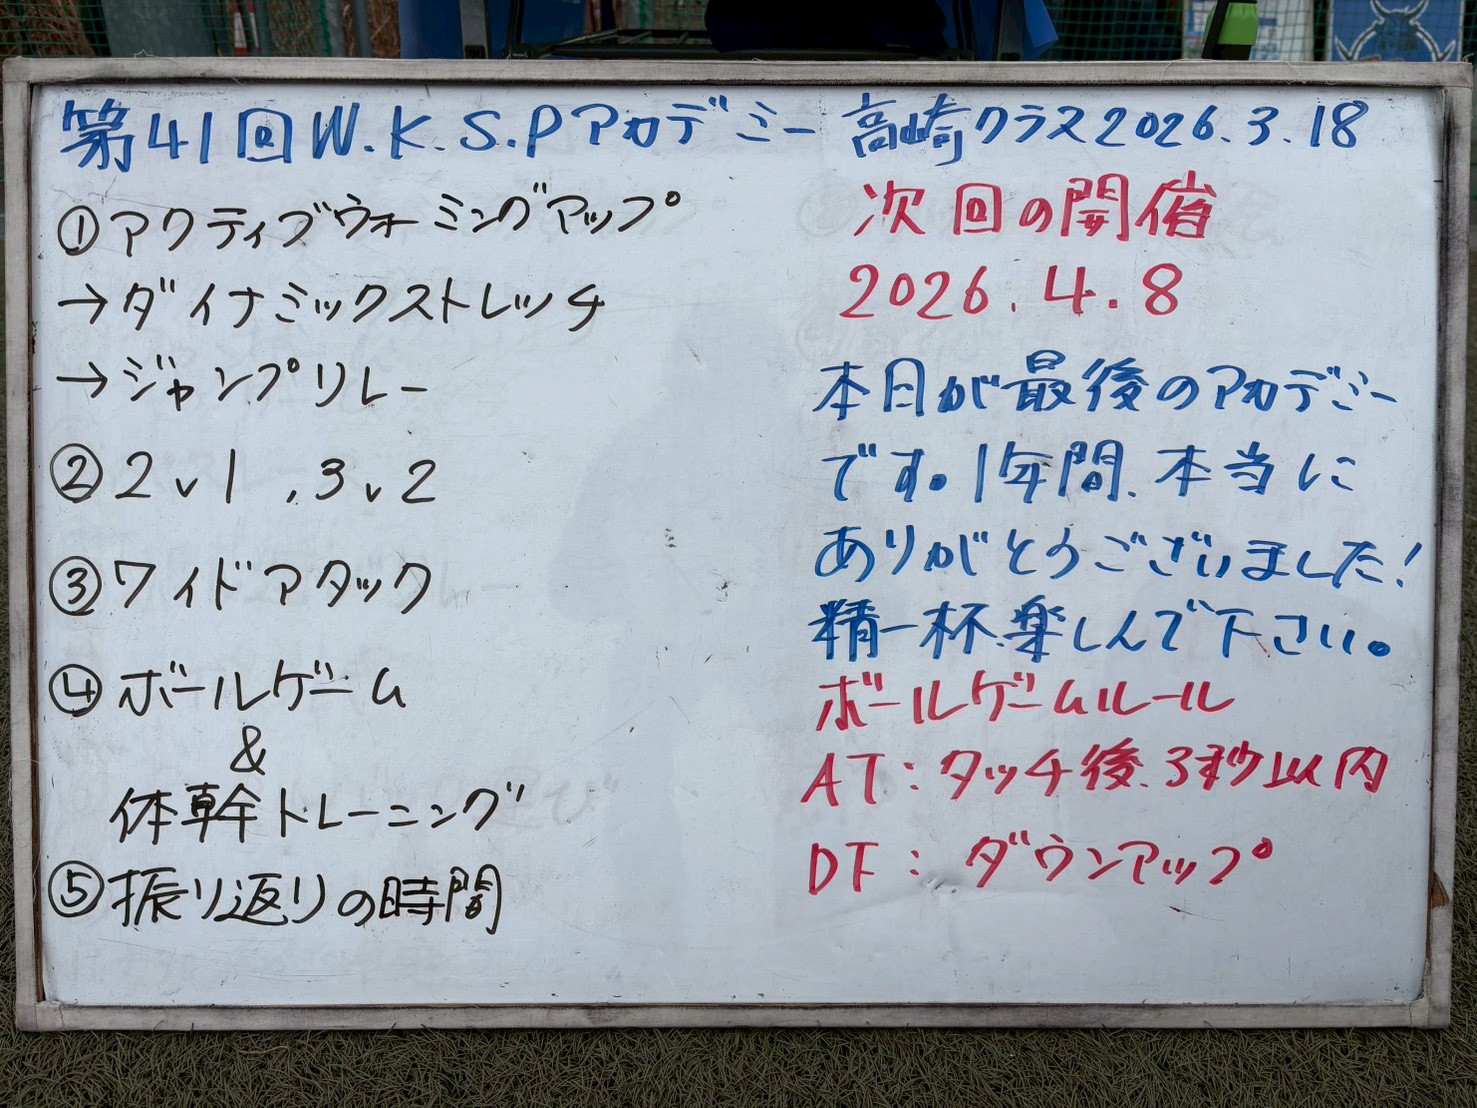 第41回W.K.S.Pアカデミー 高崎クラス2026.3.18
①アクティブウォーミングアップ
→ダイナミックストレッチ
→ジャンプリレー
②2v1,3v2
③ワイドアタック
④ボールゲーム
&
体幹トレーニング
⑤振り返りの時間
次回の開催
2026.4.8
本日が最後のアカデミー
です。1年間、本当に
ありがとうございました!
精一杯、楽しんで下さい。
ボールゲームルール
AT:タッチ後、3秒以内
DF:ダウンアップ